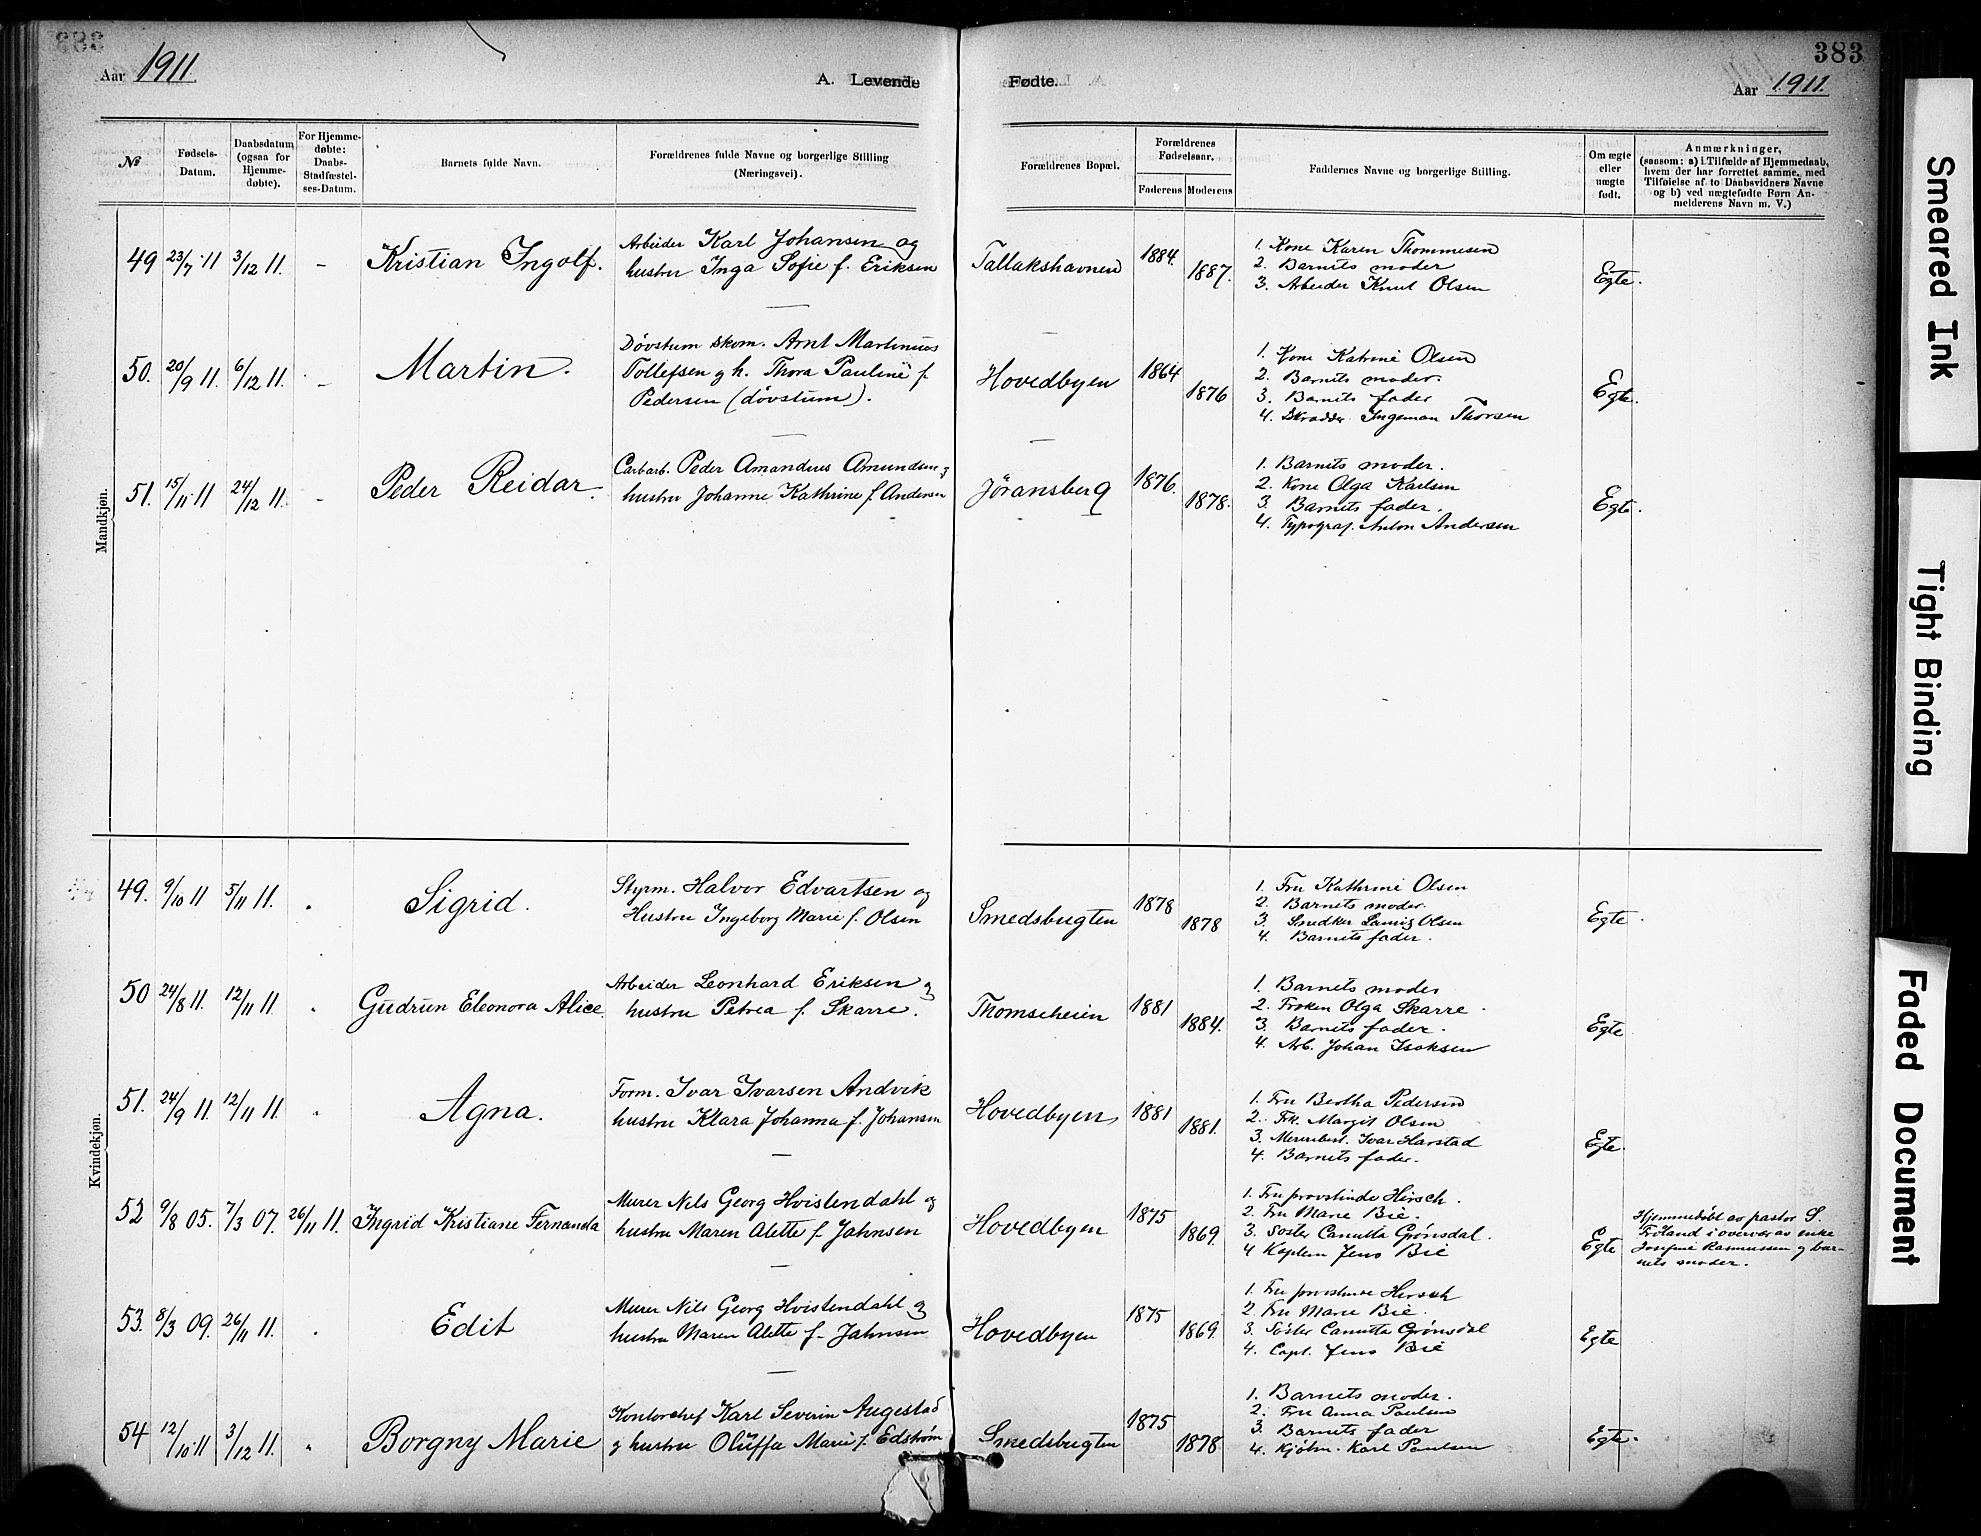 383
Aar 1911.
A. Levende Fødte.
Aar 1911.
№
Fødsels-Datum.
Daabsdatum (ogsaa for Hjemmedøbte).
For Hjemmedøbte: Daabs-Stadfæstelses-Datum.
Barnets fulde Navn.
Forældrenes fulde Navne og borgerlige Stilling (Næringsvei).
Forældrenes Bopæl.
Forældrenes Fødselsaar.
Faderens Moderens
Faddernes Navne og borgerlige Stilling.
Om ægte eller uægte født.
Anmærkninger,
(saasom: a) i Tilfælde af Hjemmedaab,
hvem der har forrettet samme, med
Tilføielse af to Daabsvidners Navne
og b) ved uægtefødte Børn An-
melderens Navn m. V.)
Mandkjøn.
49 23/7 11 3/12 11. – Kristian Ingolf.
Arbeider Karl Johansen og
hustru Inga Sofie f. Eriksen
Tallakshavnen 1884. 1887.
1. Kone Karen Thommesen
2. Barnets moder
3. Arbeider Knut Olsen
Egte.
50. 20/9 11. 6/12 11. – Martin.
Døvstum skom. Arnt Martinius
Tollefsen g h. Thora Pauline f.
Pedersen (døvstum).
Hovedbyen 1864 1876
1. Kone Katrine Olsen
2. Barnets moder.
3. Barnets fader
4. Skrædder Ingeman Thorsen
Egte.
51. 15/11 11 24/12 11. – Peder Reidar.
Carbarb. Peder Amandus Amundsen g
hustru Johanne Kathrine f. Andersen
Jøransberg 1876. 1878.
1. Barnets moder.
2. Kone Olga Karlsen
3. Barnets fader.
4. Typograf. Anton Andersen
Egte.
Kvindekjøn.
49. 9/10 11 5/11 11. Sigrid.
Styrm. Halvor Edvartsen og
Hustru Ingeborg Marie f. Olsen
Smedsbugten 1878 1878
1. Fru Kathrine Olsen
2. Barnets moder.
3. Snedker Olsen
4. Barnets fader.
Egte.
50 24/8 11. 12/11 11 Gudrun Eleonora Alice.
Arbeider Leonhard Eriksen g
hustru Petrea f. Skarre.
Thomseheien 1881 1884.
1. Barnets moder
2. Frøken Olga Skarre.
3. Barnets fader.
4. Arb. Johan Isaksen
Egte
51. 24/9 11. 12/11 11 Agna.
Form. Ivar Ivarsen Andvik
hustru Klara Johanna f. Johansen
Hovedbyen 1881 1881.
1. Fru Bertha Pedersen
2. Frk. Margit Olsen
3. Ivar Harstad
4. Barnets fader.
Egte.
52 9/8 05. 7/3 07. 26/11 11. Ingrid Kristiane Fernanda
Murer Nils Georg Hvistendahl og
hustru Maren Alette f. Jahnsen
Hovedbyen 1875 1869.
1. Fru provstinde Hirsch.
2. Fru Marie Bie.
3. Søster Camilla Grønsdal.
4 Kaptein Jens Bie
Egte
Hjemmedøbt av pastor S.
Frøland i overvær av enke
Josefine Rasmussen g bar-
nets moder.
53. 8/3 09. 26/11 11. Edit
Murer Nils Georg Hvistendahl og
hustru Maren Alette f. Jahnsen
Hovedbyen 1875 1869.
1. Fru provstinde Hirsch
2. Fru Marie Bie.
3. Søster Camilla Grønsdal
4. Capt. Jens Bie
Egte
54 12/10 11 3/12 11. Borgny Marie
Kontorchef Karl Severin Augestad
g hustru Oluffa Marie f. Edstrøm
Smedsbugten 1875 1878
1. Barnets moder.
2. Fru Anna Paulsen
3. Barnets fader
4. Kjøbm. Karl Paulsen
Egte.
Smeared Ink
Tight Binding
Faded Document